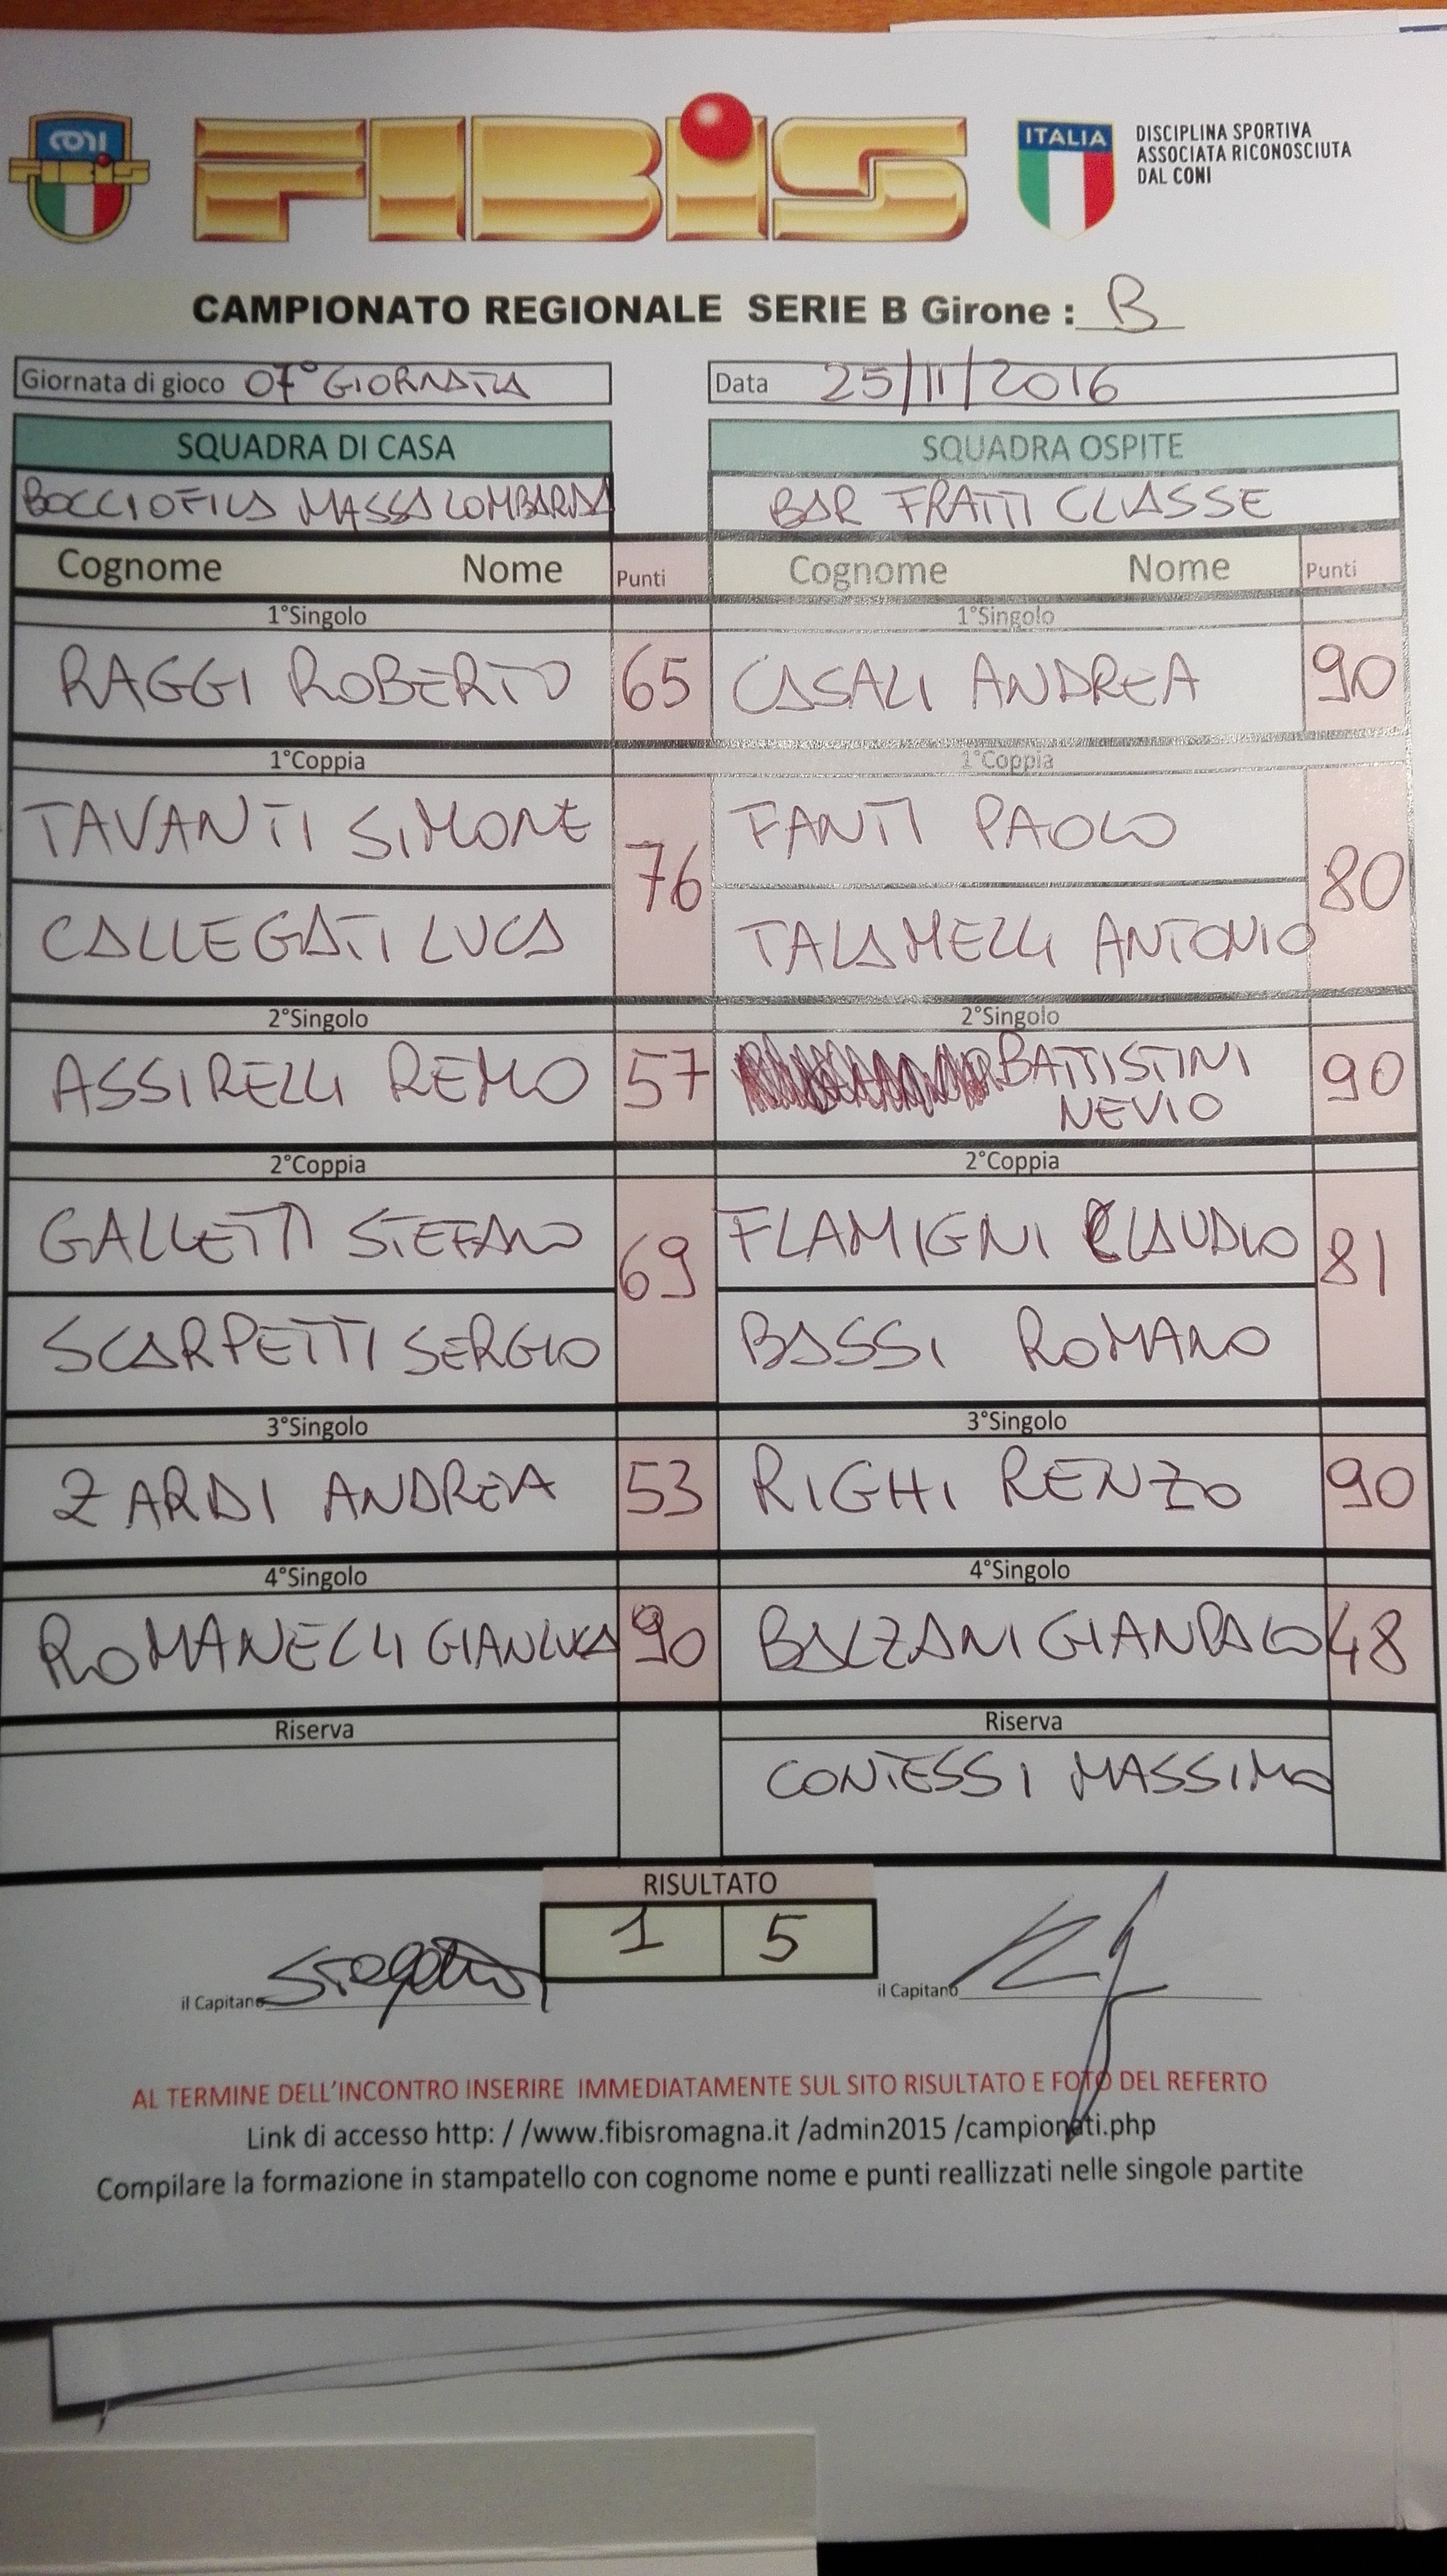 CONI
FIBIS
FIBiS
ITALIA
DISCIPLINA SPORTIVA
ASSOCIATA RICONOSCIUTA
DAL CONI
CAMPIONATO REGIONALE SERIE B Girone : B
Giornata di gioco 07° GIORNATA
Data 25/11/2016
SQUADRA DI CASA SQUADRA OSPITE
BOCCIOFILA MASSA LOMBARDA BAR FRATTI CLASSE
Cognome Nome Punti Cognome Nome Punti
1°Singolo 1°Singolo
RAGGI ROBERTO 65 CASALI ANDREA 90
1°Coppia 1°Coppia
TAVANTI SIMONE FANTI PAOLO
76 80
CALLEGATI LUCA TALAMELLI ANTONIO
2°Singolo 2°Singolo
ASSIRELLI REMO 57 BATTISTINI 90
NEVIO
2°Coppia 2°Coppia
GALLETTI STEFANO FLAMIGNI CLAUDIO
69 81
SCARPETTI SERGIO BASSI ROMANO
3°Singolo 3°Singolo
ZARDI ANDREA 53 RIGHI RENZO 90
4°Singolo 4°Singolo
ROMANELLI GIANLUCA 90 BALZANI GIANPALO 48
Riserva Riserva
CONTESSI MASSIMO
RISULTATO
1 5
il Capitano il Capitano
AL TERMINE DELL'INCONTRO INSERIRE IMMEDIATAMENTE SUL SITO RISULTATO E FOTO DEL REFERTO
Link di accesso http: / /www.fibisromagna.it /admin2015 /campionati.php
Compilare la formazione in stampatello con cognome nome e punti reallizzati nelle singole partite